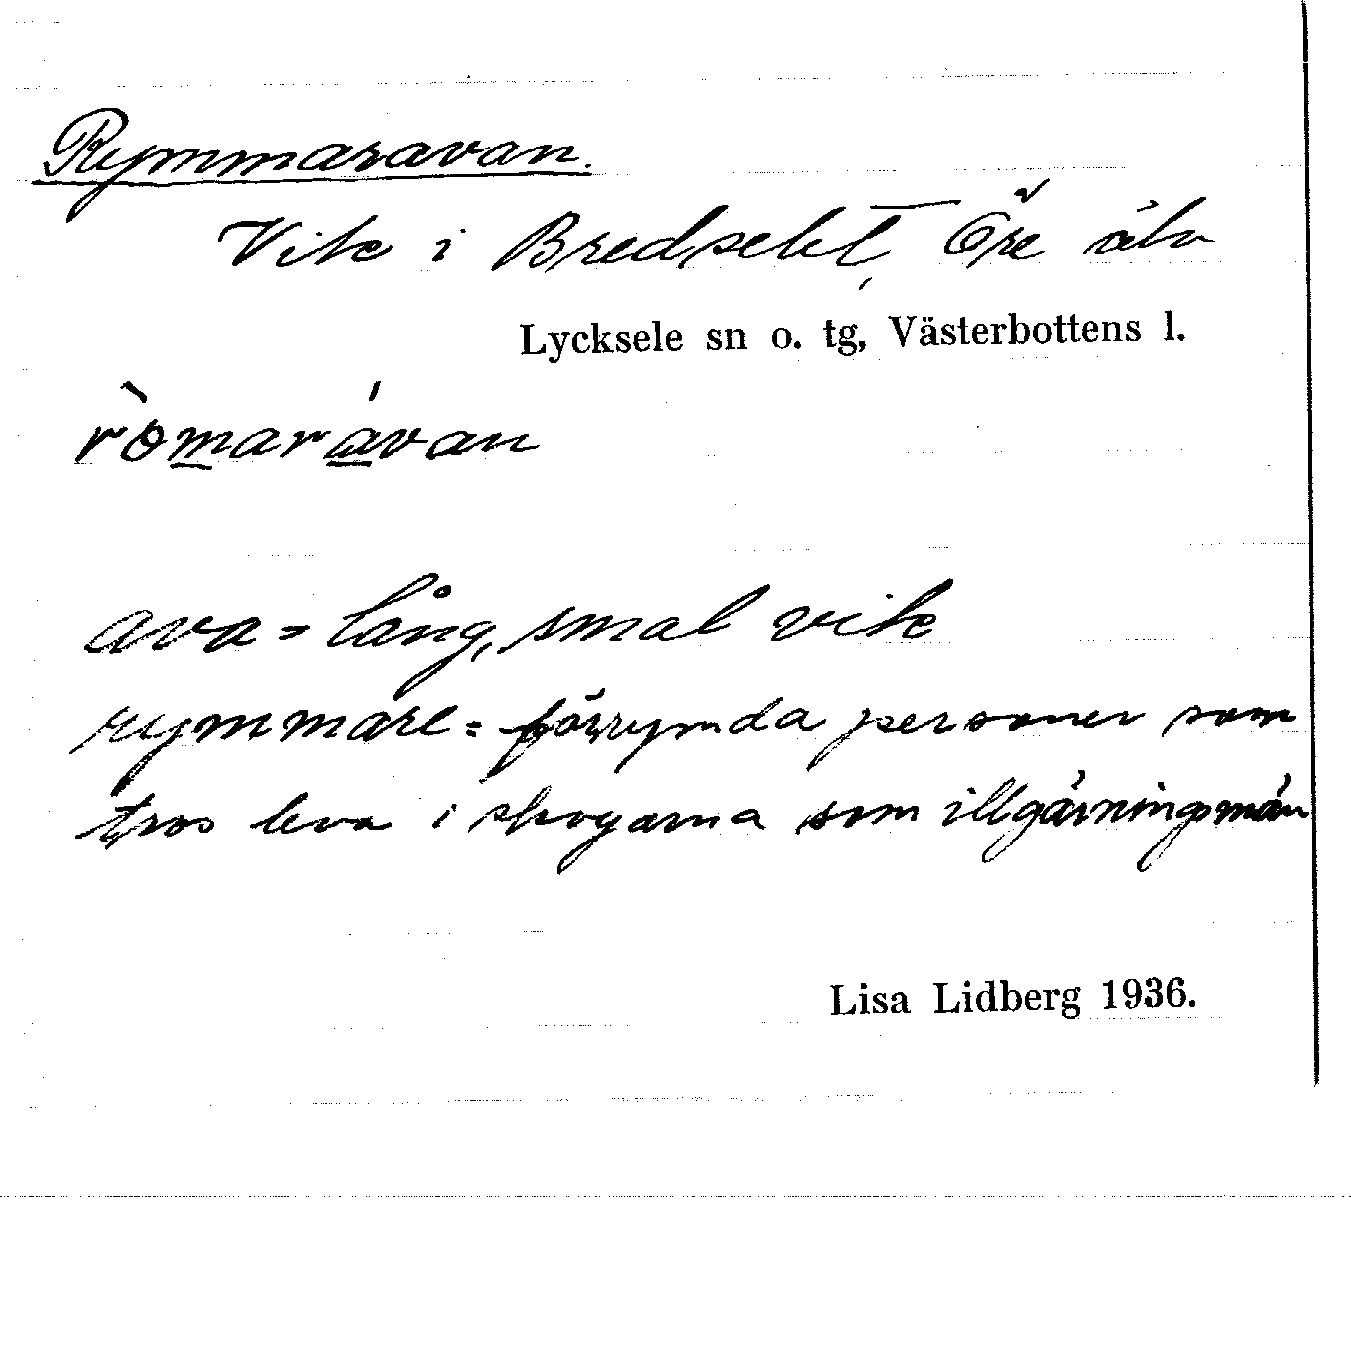 Rymmaravan.
Vik i Bredselet, Öre älv
Lycksele sn o. tg, Västerbottens l.
ròmarávan
ava = lång, smal vik
rymmare = förrymda personer som
tros leva i skogarna som illgärningsmän
Lisa Lidberg 1936.